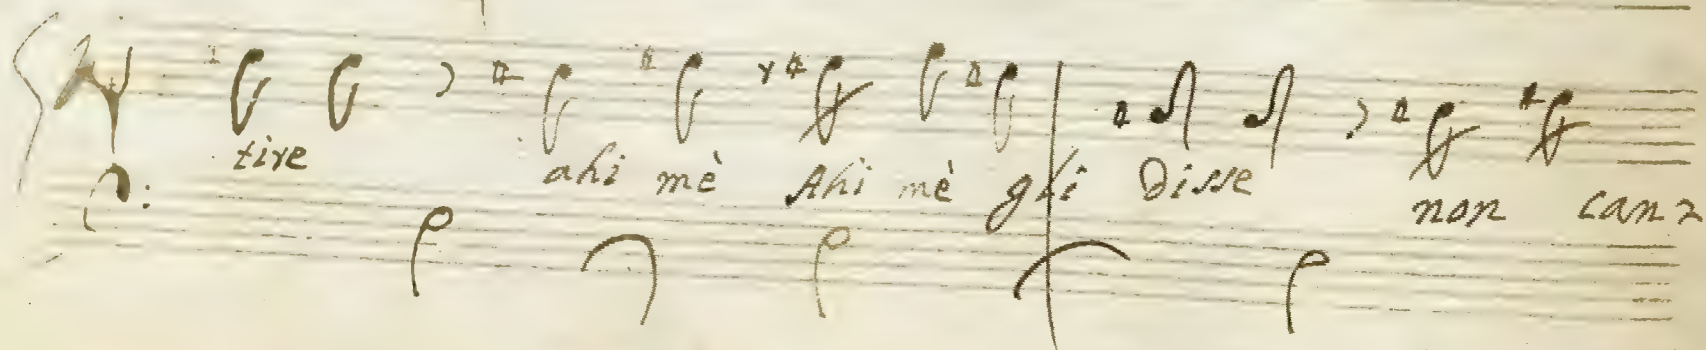 tire ahi mè Ahi mè gli Disse non can